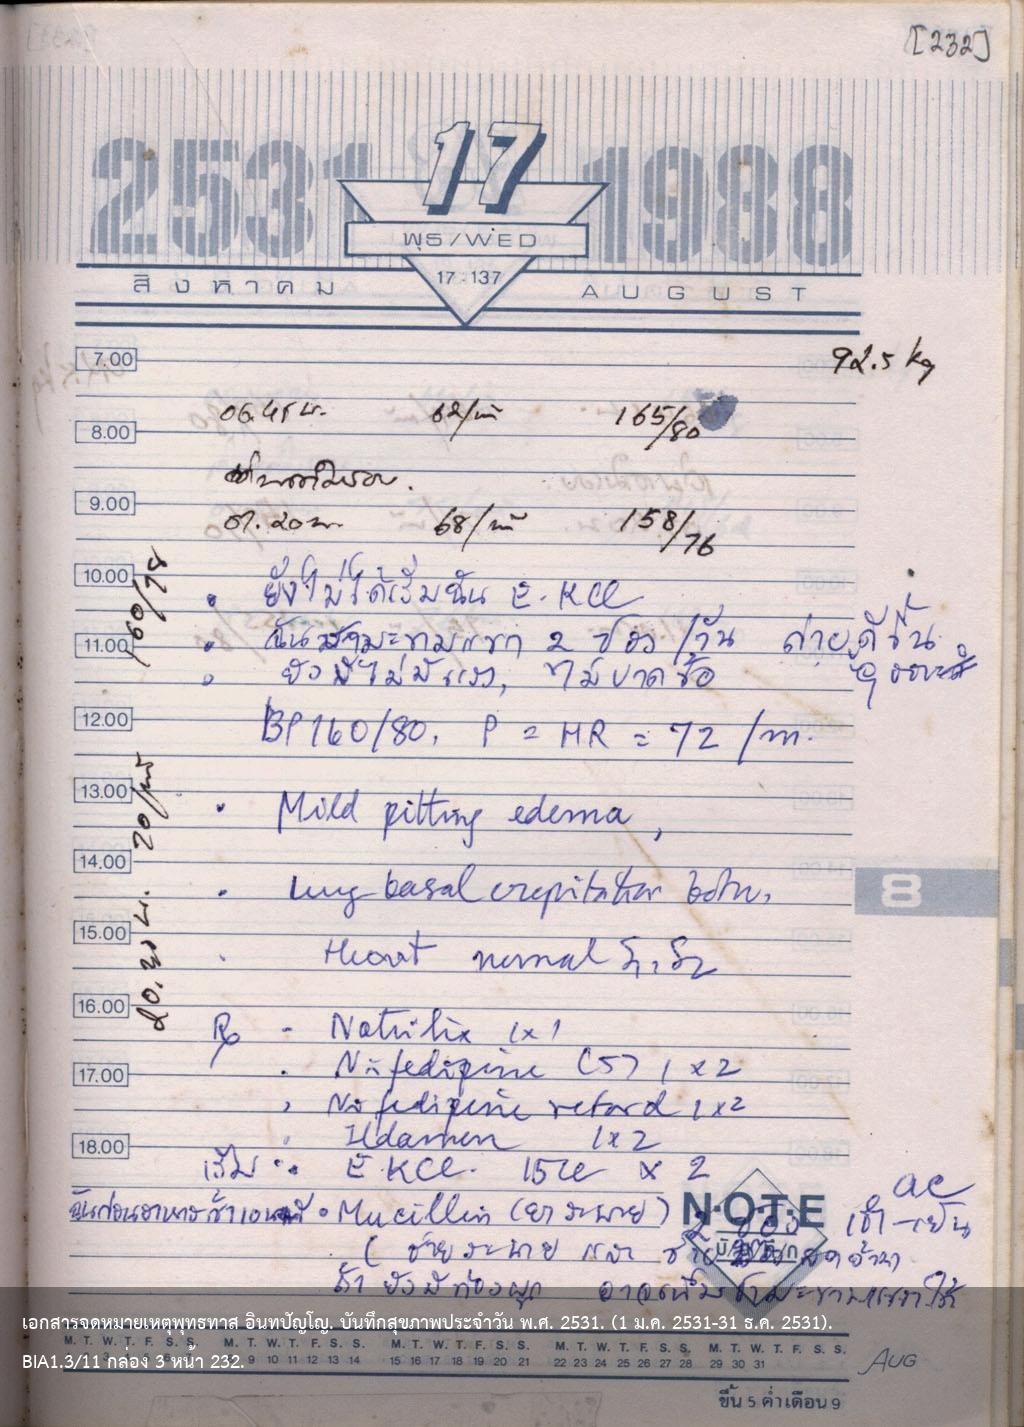 [232]
2531 17 1988
พุธ/WED
17:137
สิงหาคม AUGUST
7.00
92.5 kg
06.45 น. 62/นาที 165/80
8.00
9.00
07.20 น. 68/นาที 158/76
10.00
160/78
ยังไม่ได้เริ่มฉัน E.KCl
11.00
ฉัน มะขามแขก 2 ซอง/วัน ถ่ายดีขึ้น
ไม่มีแรง, ไม่ปวดข้อ
12.00
BP 160/80, P = HR = 72/m.
13.00
20.30 น. 70/นาที
Mild pitting edema,
14.00
lung basal crepitation both.
8
15.00
Heart normal S1, S2
16.00
Rx - Natrilix 1x1
17.00
Nifedipine (5) 1 x 2
Nifedipine retard 1x2
18.00
Ildamen 1x2
เริ่ม E.KCl. 15cc x 2
ac
ฉันก่อนอาหารเช้า Mucillin (ยาระบาย) 2 ซอง เช้า-เย็น
N·O·T·E
บันทึก
(ช่วยระบาย และ ช่วย
ถ้า ยังมีท้องผูก อาจเพิ่มชามะขามแขกได้
เอกสารจดหมายเหตุพุทธทาส อินทปัญโญ. บันทึกสุขภาพประจำวัน พ.ศ. 2531. (1 ม.ค. 2531-31 ธ.ค. 2531).
M. T. W. T. F. S. S. M. T. W. T. F. S. S. M. T. W. T. F. S. S. M. T. W. T. F. S. S. M. T. W. T. F. S. S.
BIA1.3/11 กล่อง 3 หน้า 232.
9 10 11 12 13 14 15 16 17 18 19 20 21 22 23 24 25 26 27 28 29 30 31
AUG
ขึ้น 5 ค่ำเดือน 9